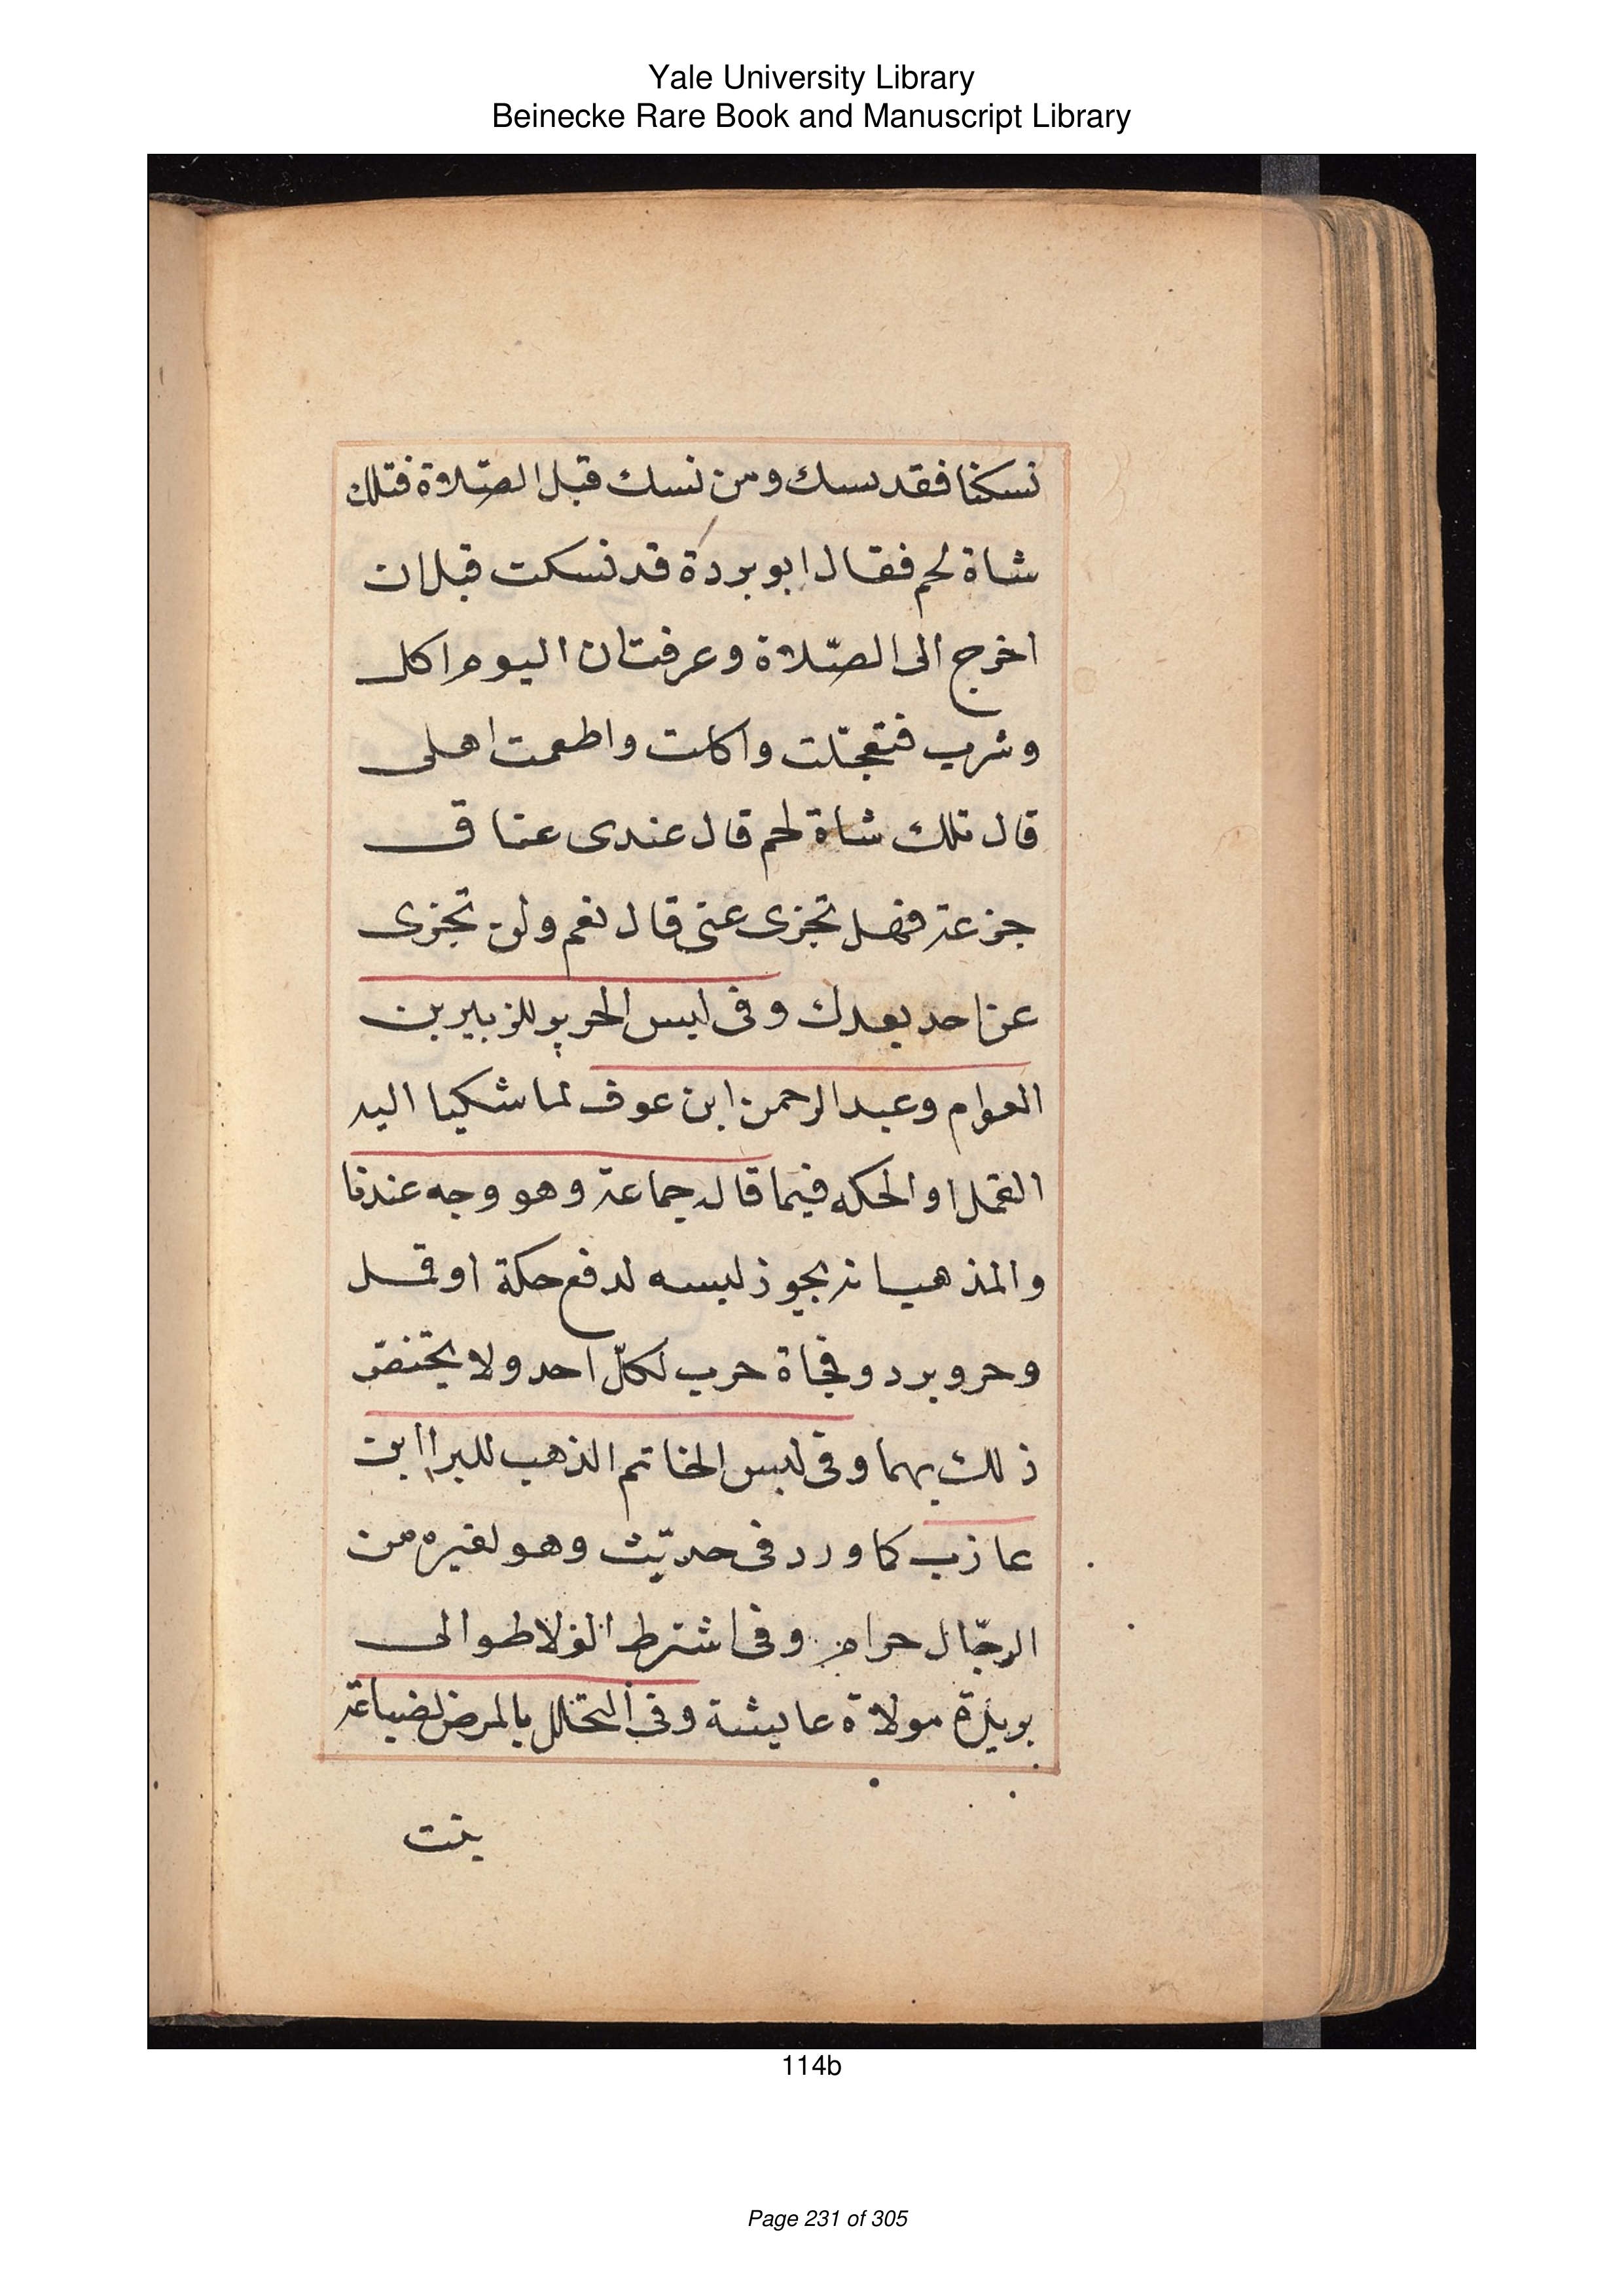 Yale University Library
Beinecke Rare Book and Manuscript Library
نسكنا فقد نسك ومن نسك قبل الصّلاة فتلك
شاة لحم فقال ابو بردة قد نسكت قبل ان
اخرج الى الصّلاة وعرفت ان اليوم اكل
وشرب فتعجّلت واكلت واطعمت اهلى
قال تلك شاة لحم قال عندى عناق
جزعة فهل تجزى عنى قال نعم ولن تجزى
عن احد بعدك وفى لبس الحرير للزبير بن
العوام وعبد الرحمن ابن عوف لما شكيا اليه
القمل او الحكه فيما قاله جماعة وهو وجه عندنا
والمذهب انه يجوز لبسه لدفع حكة او قمل
وحر وبرد وفجاة حرب لكلّ احد ولا يختص
ذلك بهما وفى لبس الخاتم الذهب للبرا ابن
عازب كما ورد فى حديث وهو لغيره من
الرجّال حرام وفى اشترط الولا طوالى
بريرة مولاة عايشة وفى التحلل بالمرض لضباعة
بنت
114b
Page 231 of 305